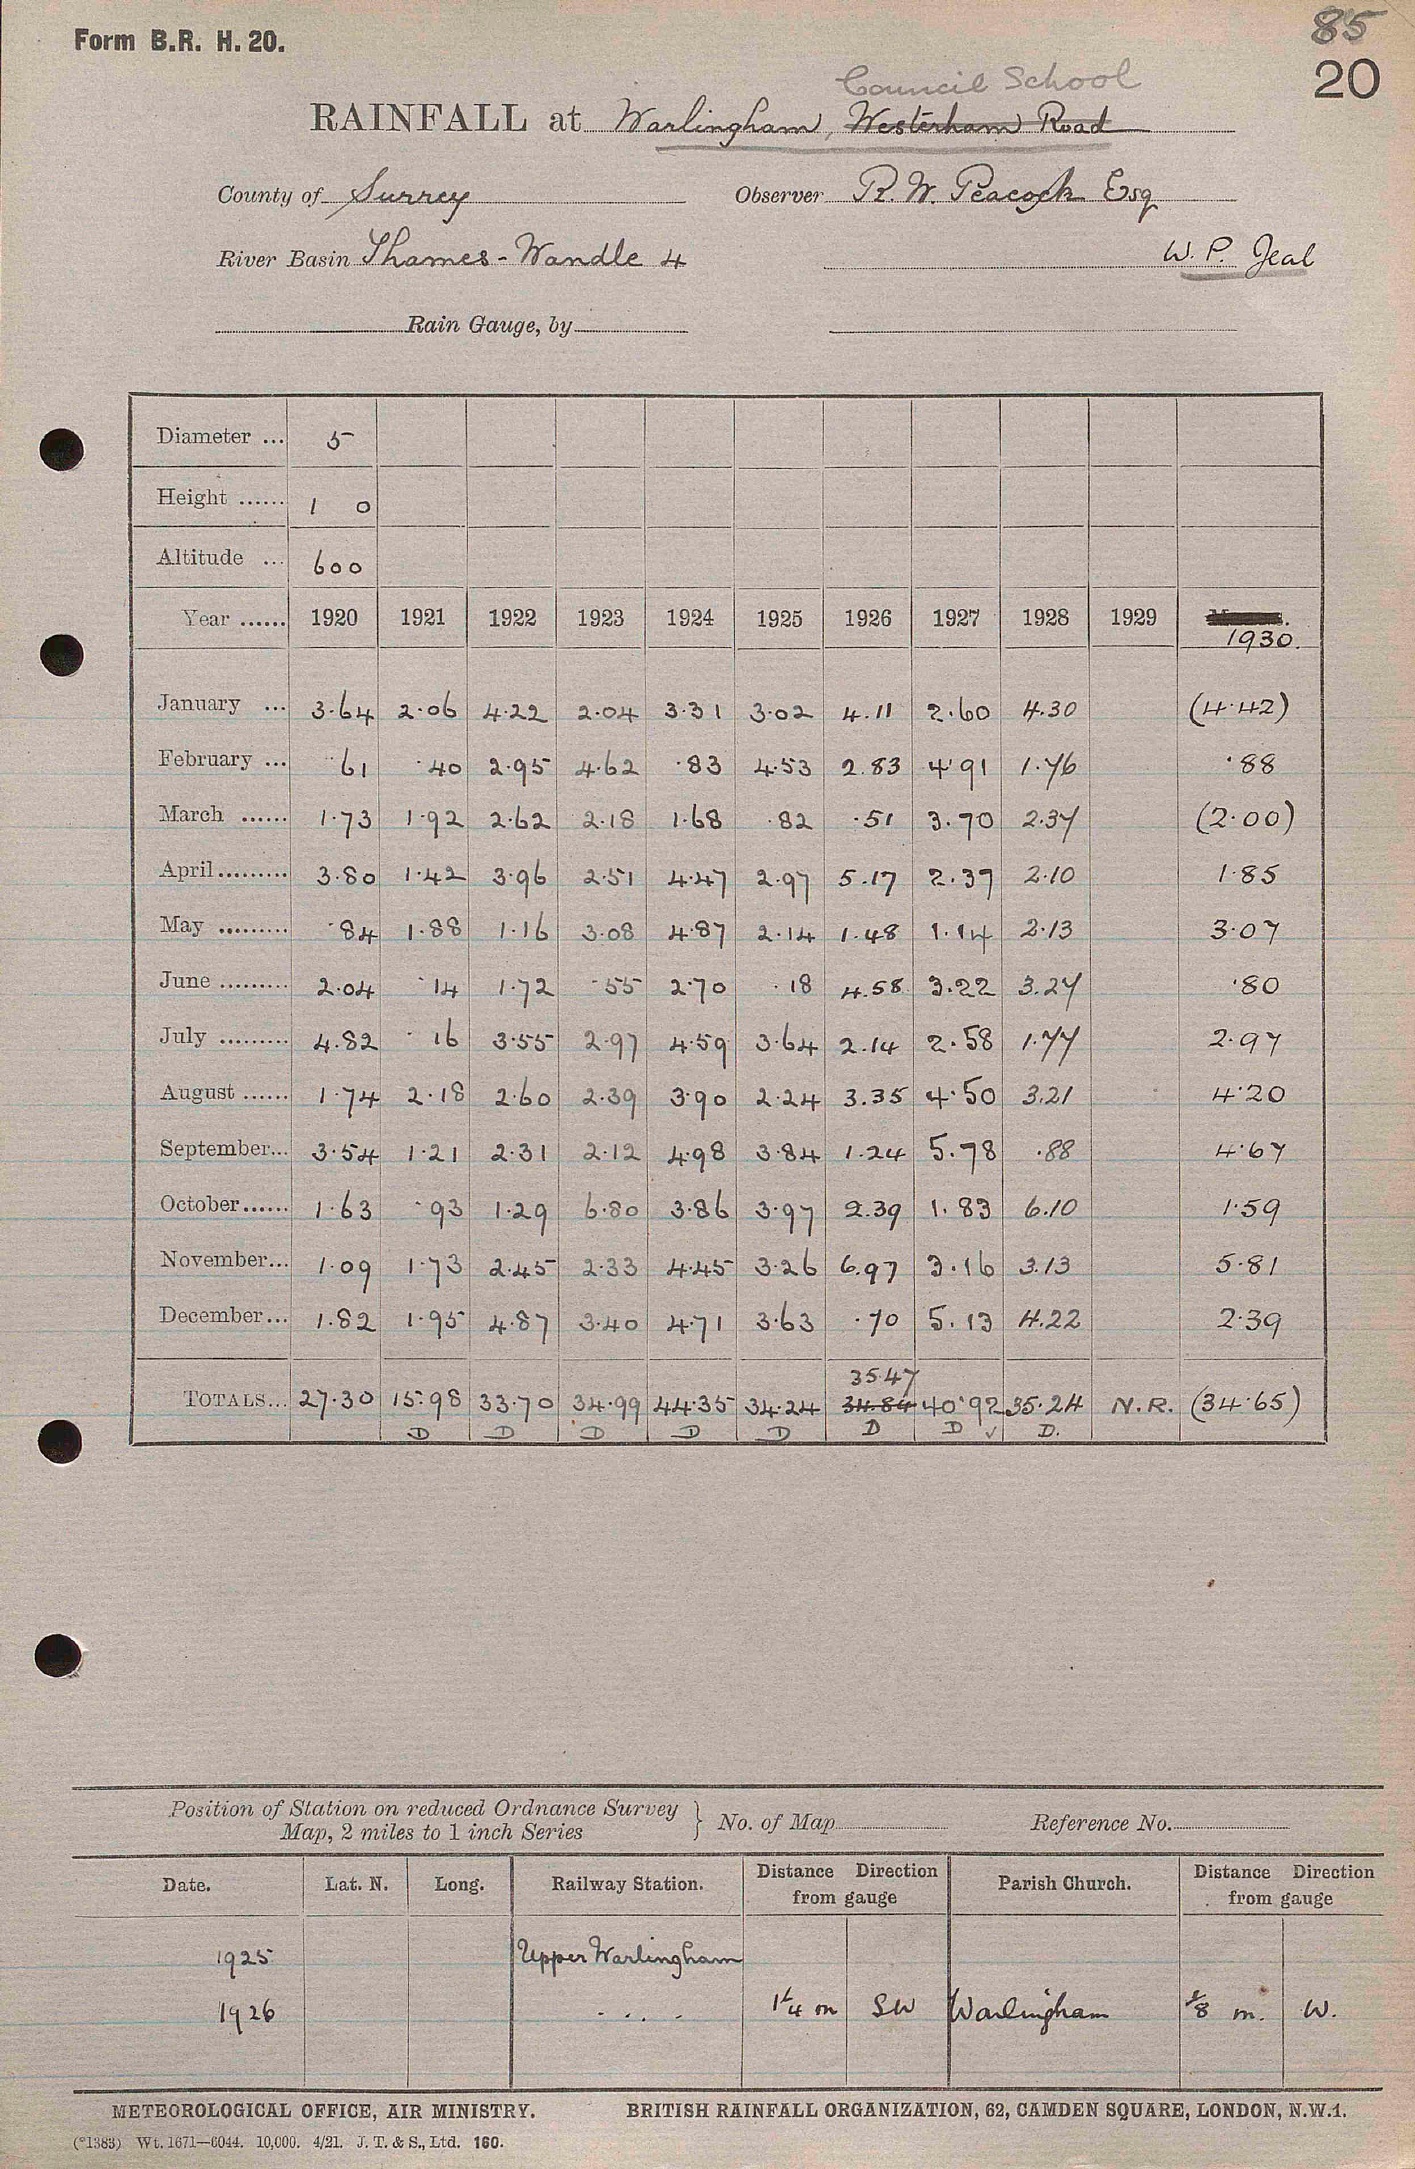 85
Form B.R. H. 20.
20
Council School
RAINFALL at Warlingham, Westerham Road
County of Surrey Observer R. W. Peacock Esq
River Basin Thames - Wandle 4 W. P. Jeal
Rain Gauge, by
Diameter ... 5
Height ...... 1 0
Altitude ... 600
Year ...... 1920 1921 1922 1923 1924 1925 1926 1927 1928 1929
1930.
January ... 3.64 2.06 4.22 2.04 3.31 3.02 4.11 2.60 4.30 (4.42)
February ... .61 .40 2.95 4.62 .83 4.53 2.83 4.91 1.76 .88
March ...... 1.73 1.92 2.62 2.18 1.68 .82 .51 3.70 2.37 (2.00)
April......... 3.80 1.42 3.96 2.51 4.47 2.97 5.17 2.37 2.10 1.85
May ......... .84 1.88 1.16 3.08 4.87 2.14 1.48 1.14 2.13 3.07
June ......... 2.04 .14 1.72 .55 2.70 .18 4.58 3.22 3.27 .80
July ......... 4.82 .16 3.55 2.97 4.59 3.64 2.14 2.58 1.77 2.97
August ...... 1.74 2.18 2.60 2.39 3.90 2.24 3.35 4.50 3.21 4.20
September... 3.54 1.21 2.31 2.12 4.98 3.84 1.24 5.78 .88 4.67
October...... 1.63 .93 1.29 6.80 3.86 3.97 2.39 1.83 6.10 1.59
November... 1.09 1.73 2.45 2.33 4.45 3.26 6.97 3.16 3.13 5.81
December... 1.82 1.95 4.87 3.40 4.71 3.63 .70 5.13 4.22 2.39
35.47
TOTALS... 27.30 15.98 33.70 34.99 44.35 34.24 34.84 40.92 35.24 N.R. (34.65)
D D D D D D D ✓ D.
Position of Station on reduced Ordnance Survey
Map, 2 miles to 1 inch Series } No. of Map Reference No.
Date. Lat. N. Long. Railway Station. Distance Direction from gauge Parish Church. Distance Direction from gauge
1925 Upper Warlingham
1926 " " " 1¼ m SW Warlingham ⅛ m. W.
METEOROLOGICAL OFFICE, AIR MINISTRY. BRITISH RAINFALL ORGANIZATION, 62, CAMDEN SQUARE, LONDON, N.W.1.
(*1383) Wt. 1671—6044. 10,000. 4/21. J. T. & S., Ltd. 160.